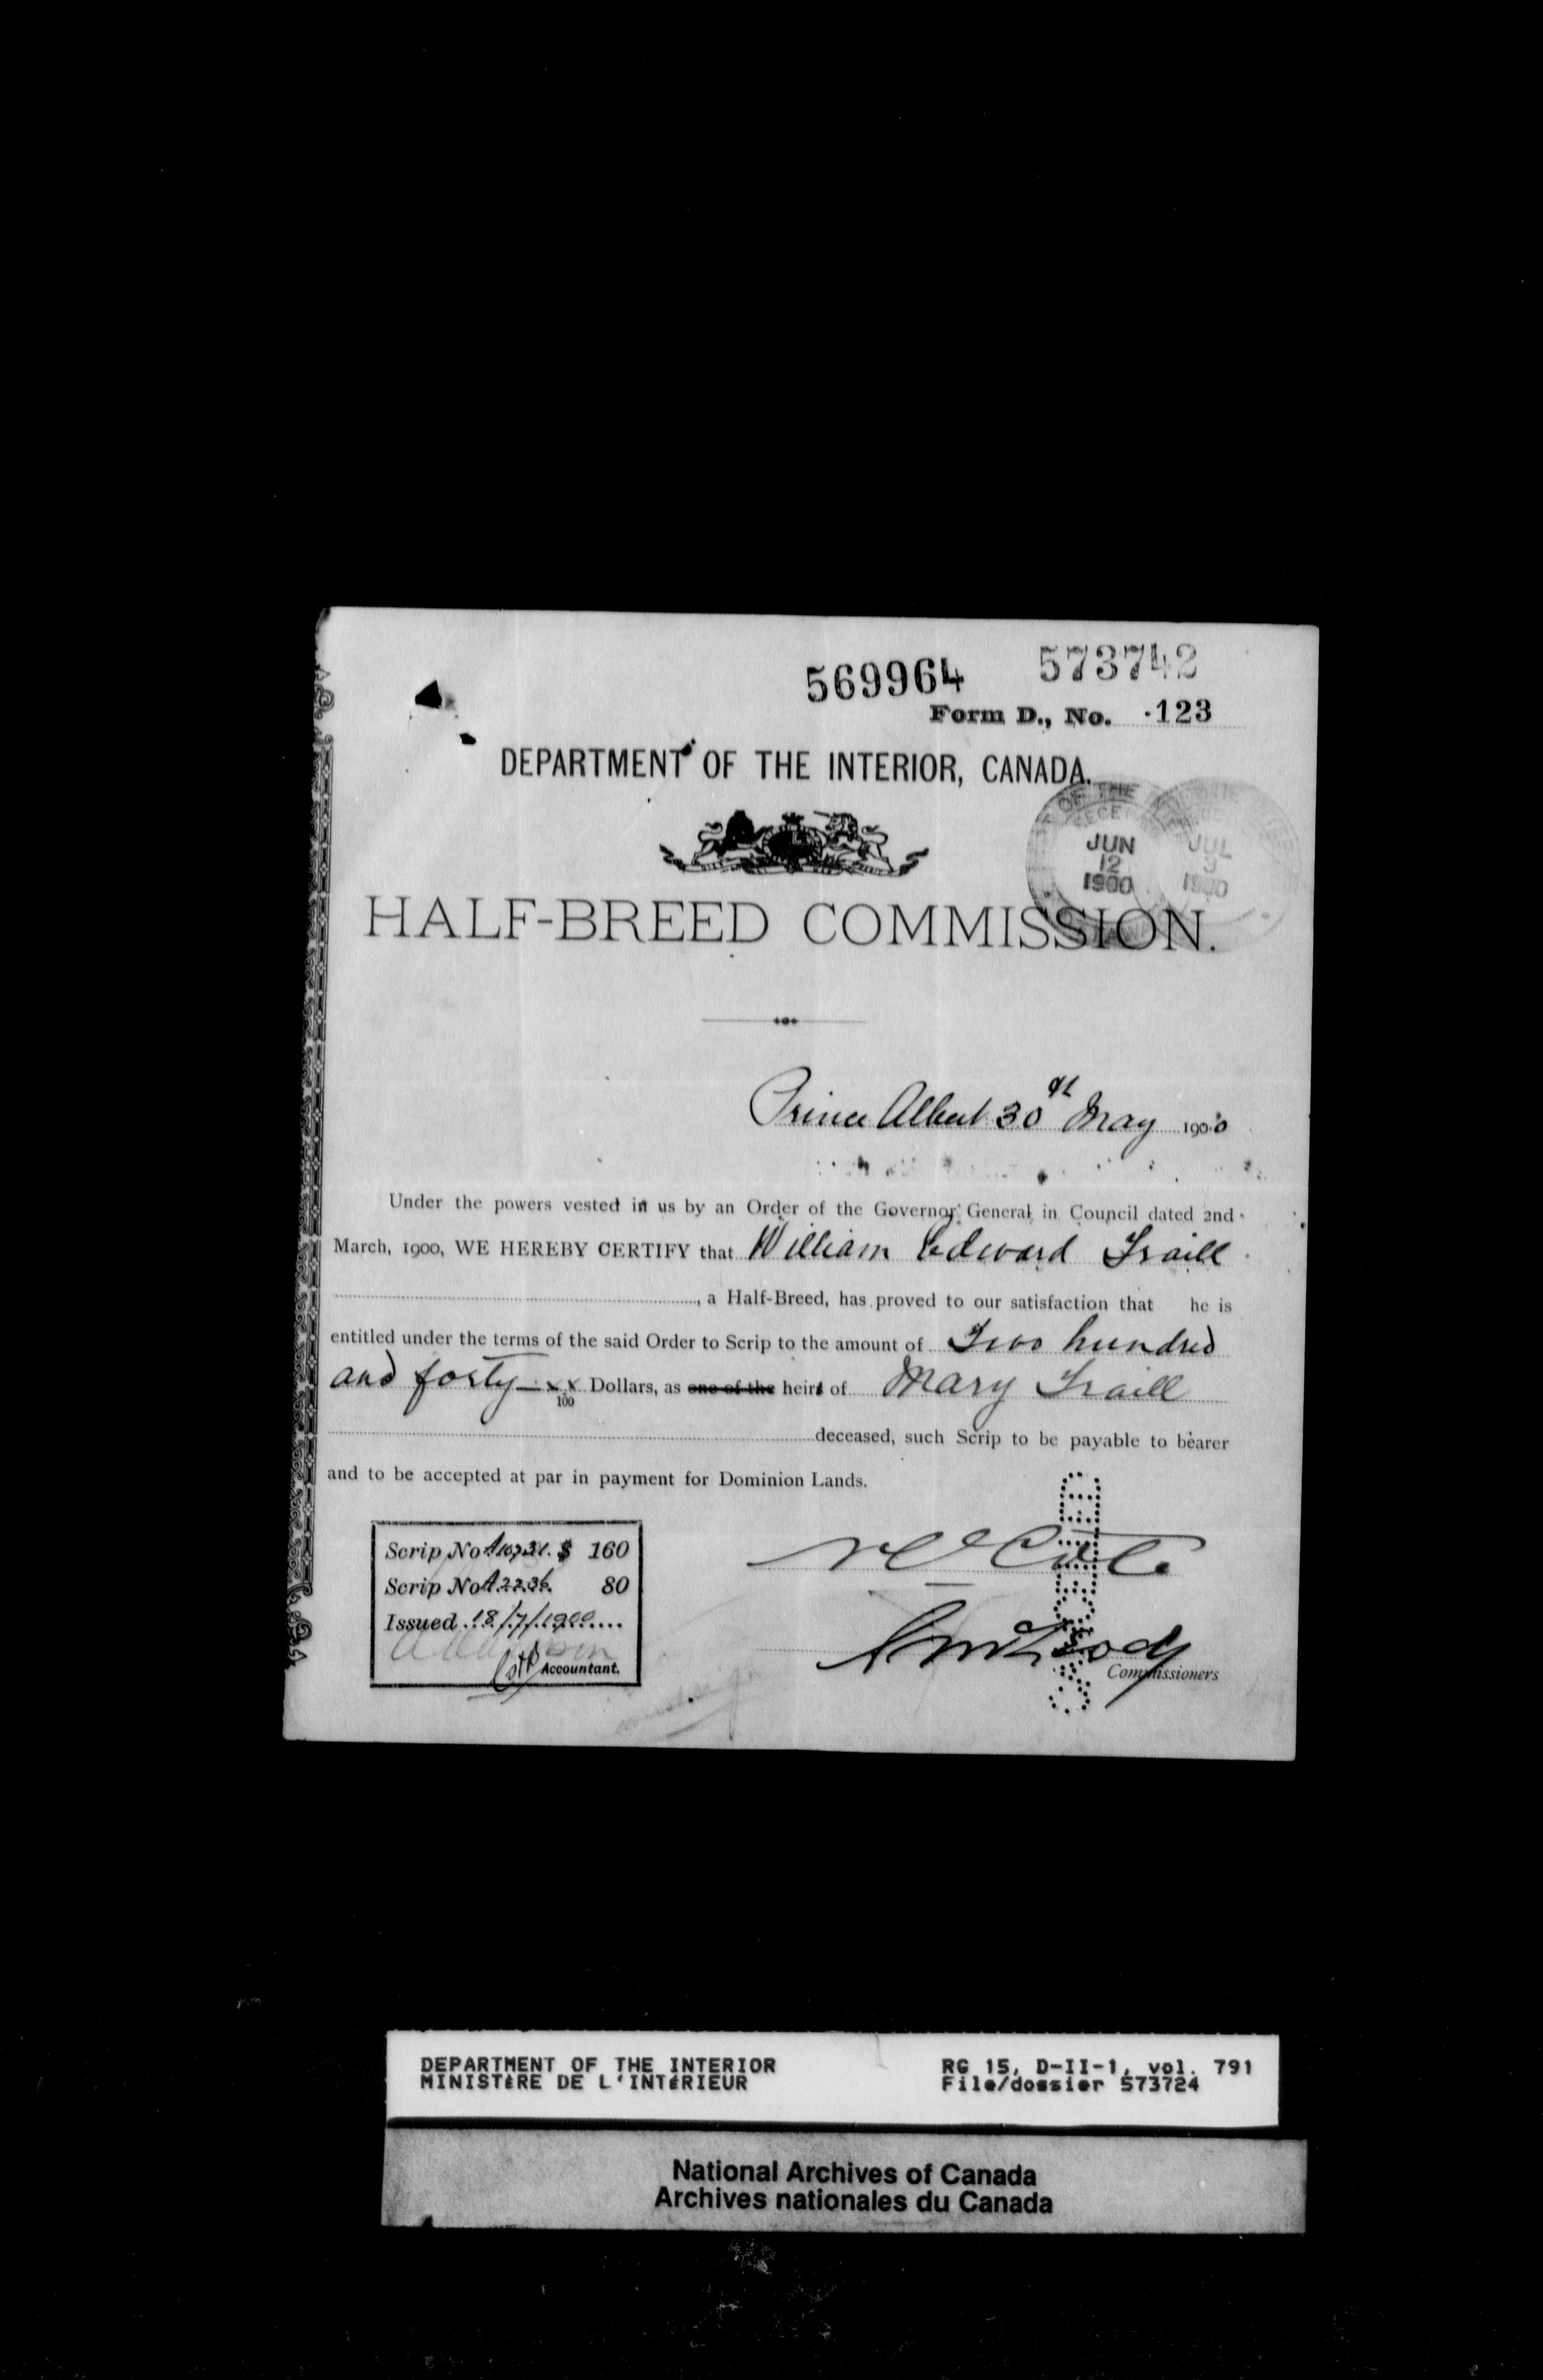 569964 573742
Form D., No. 123
DEPARTMENT OF THE INTERIOR, CANADA.
OF THE
JUN
12
1900
JUL
3
1900
HALF-BREED COMMISSION.
Prince Albert 30th May 1900
Under the powers vested in us by an Order of the Governor General in Council dated 2nd
March, 1900, WE HEREBY CERTIFY that William Edward Traill
, a Half-Breed, has proved to our satisfaction that he is
entitled under the terms of the said Order to Scrip to the amount of Two hundred
and forty xx/100 Dollars, as one of the heirs of Mary Traill
deceased, such Scrip to be payable to bearer
and to be accepted at par in payment for Dominion Lands.
Scrip No A10731. $ 160
Scrip No A2236. 80
Issued 18/7/1900
Accountant.
Commissioners
DEPARTMENT OF THE INTERIOR
MINISTÈRE DE L'INTÉRIEUR
RG 15, D-II-1, vol. 791
File/dossier 573724
National Archives of Canada
Archives nationales du Canada